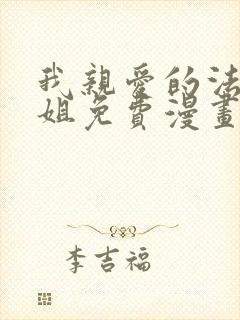 我親愛的法
姐免費漫畫
李吉福